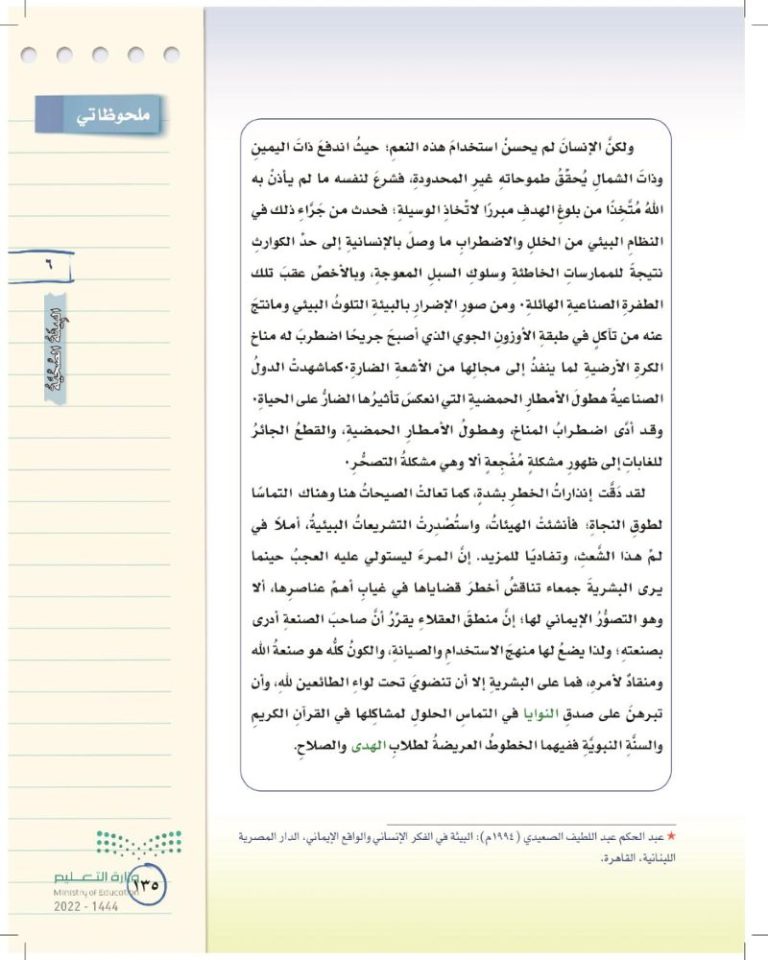 ملحوظاتي
ولكنَّ الإنسانَ لم يحسنْ استخدامَ هذه النعمِ؛ حيثُ اندفعَ ذاتَ اليمينِ
وذاتَ الشمالِ يُحقِّقُ طموحاتهِ غيرِ المحدودةِ، فشرعَ لنفسه ما لم يأذنْ به
اللهُ مُتَّخِذًا من بلوغِ الهدفِ مبررًا لاتِّخاذِ الوسيلةِ؛ فحدث من جَرَّاءِ ذلك في
النظامِ البيئي من الخللِ والاضطرابِ ما وصلَ بالإنسانيةِ إلى حدِّ الكوارثِ
نتيجةً للممارساتِ الخاطئةِ وسلوكِ السبلِ المعوجةِ، وبالأخصِّ عقبَ تلك
الطفرةِ الصناعيةِ الهائلةِ. ومن صورِ الإضرارِ بالبيئةِ التلوثُ البيئي ومانتجَ
عنه من تآكلٍ في طبقةِ الأوزونِ الجوي الذي أصبحَ جريحًا اضطربَ له مناخُ
الكرةِ الأرضيةِ لما ينفذُ إلى مجالِها من الأشعةِ الضارةِ.كماشهدتْ الدولُ
الصناعيةُ هطولَ الأمطارِ الحمضيةِ التي انعكسَ تأثيرُها الضارُّ على الحياةِ.
وقد أدَّى اضطرابُ المناخِ، وهطولُ الأمطارِ الحمضيةِ، والقطعُ الجائرُ
للغاباتِ إلى ظهورِ مشكلةٍ مُفْجِعةٍ ألا وهي مشكلةُ التصحُّرِ.
لقد دَقَّت إنذاراتُ الخطرِ بشدةٍ، كما تعالتْ الصيحاتُ هنا وهناك التماسًا
لطوقِ النجاةِ؛ فأنشئتْ الهيئاتُ، واستُصْدِرتْ التشريعاتُ البيئيةُ، أملاً في
لمِّ هذا الشَّعثِ، وتفاديًا للمزيدِ. إنَّ المرءَ ليستولي عليه العجبُ حينما
يرى البشريةَ جمعاء تناقشُ أخطرَ قضاياها في غيابِ أهمِّ عناصرِها، ألا
وهو التصوُّرُ الإيماني لها؛ إنَّ منطقَ العقلاءِ يقرِّرُ أنَّ صاحبَ الصنعةِ أدرى
بصنعتهِ؛ ولذا يضعُ لها منهجَ الاستخدامِ والصيانةِ، والكونُ كلُّه هو صنعةُ الله
ومنقادٌ لأمرهِ، فما على البشريةِ إلا أن تنضويَ تحت لواءِ الطائعين للهِ، وأن
تبرهنَ على صدقِ النوايا في التماسِ الحلولِ لمشاكلِها في القرآنِ الكريمِ
والسنَّةِ النبويَّةِ ففيهما الخطوطُ العريضةُ لطلابِ الهدى والصلاحِ.
٦
البيئة الصحية
* عبد الحكم عبد اللطيف الصعيدي (١٩٩٤م): البيئة في الفكر الإنساني والواقع الإيماني، الدار المصرية
اللبنانية، القاهرة.
وزارة التعليم
Ministry of Education
2022 - 1444
١٣٥